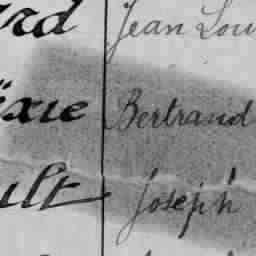 rd Jean Lou
ixie Bertrand
ult Joseph